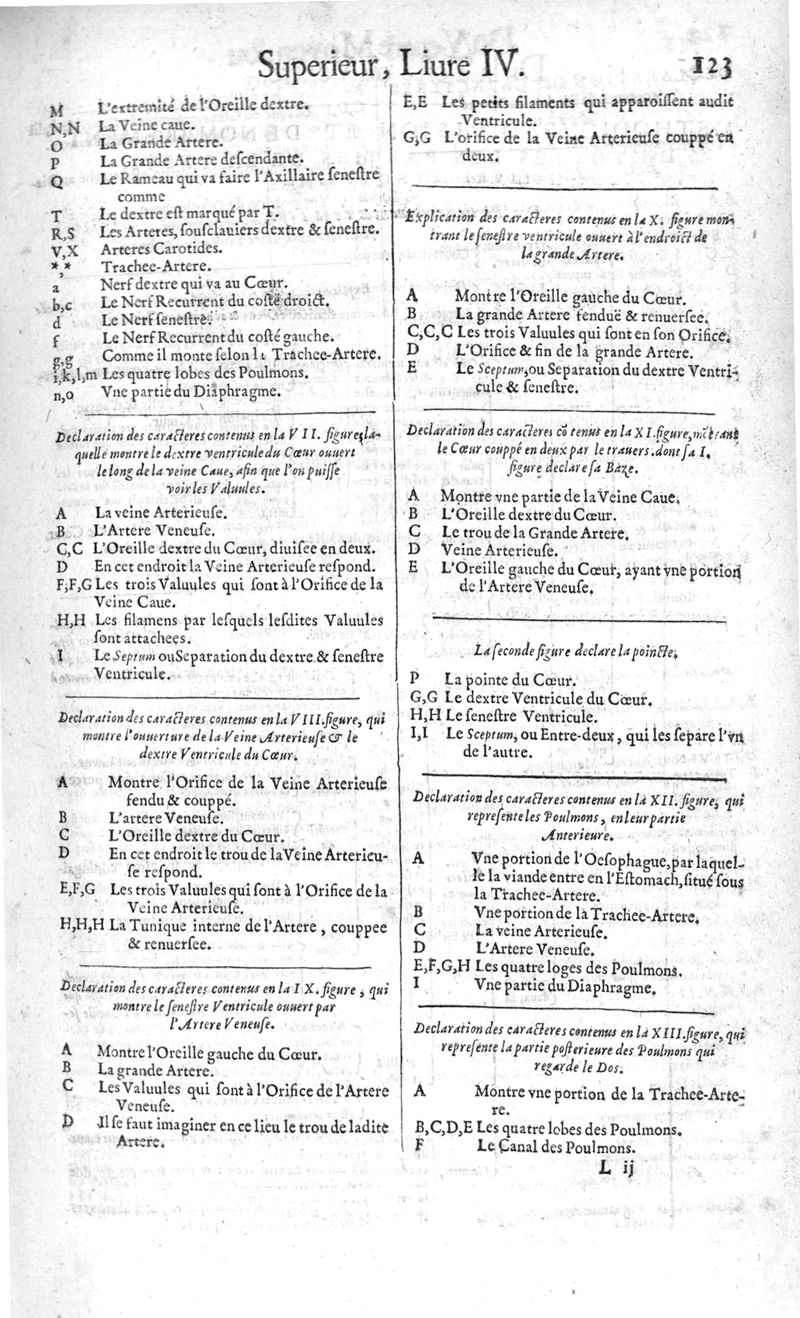 Superieur, Liure IV. 123
M L'extremité de l'Oreille dextre.
N,N La Veine caue.
O La Grande Artere.
P La Grande Artere deſcendante.
Q Le Rameau qui va faire l'Axillaire ſeneſtre
comme
T Le dextre eſt marqué par T.
R,S Les Arteres, ſouſclauiers dextre & ſeneſtre.
V,X Arteres Carotides.
*,* Trachee-Artere.
a Nerf dextre qui va au Cœur.
b,c Le Nerf Recurrent du coſté droict.
d Le Nerf ſeneſtre.
f Le Nerf Recurrent du coſté gauche.
g,g Comme il monte ſelon la Trachee-Artere.
i,k,l,m Les quatre lobes des Poulmons.
n,o Vne partie du Diaphragme.
Declaration des caracteres contenus en la VII. figure, la-
quelle montre le dextre ventricule du Cœur ouuert
le long de la veine Caue, afin que l'on puiſſe
voir les Valuules.
A La veine Arterieuſe.
B L'Artere Veneuſe.
C,C L'Oreille dextre du Cœur, diuiſee en deux.
D En cet endroit la Veine Arterieuſe reſpond.
F,F,G Les trois Valuules qui ſont à l'Orifice de la
Veine Caue.
H,H Les filamens par leſquels leſdites Valuules
ſont attachees.
I Le Septum ou Separation du dextre & ſeneſtre
Ventricule.
Declaration des caracteres contenus en la VIII. figure, qui
montre l'ouuerture de la Veine Arterieuſe & le
dextre Ventricule du Cœur.
A Montre l'Orifice de la Veine Arterieuſe
fendu & couppé.
B L'artere Veneuſe.
C L'Oreille dextre du Cœur.
D En cet endroit le trou de la Veine Arterieu-
ſe reſpond.
E,F,G Les trois Valuules qui ſont à l'Orifice de la
Veine Arterieuſe.
H,H,H La Tunique interne de l'Artere, couppee
& renuerſee.
Declaration des caracteres contenus en la IX. figure, qui
montre le ſeneſtre Ventricule ouuert par
l'Artere Veneuſe.
A Montre l'Oreille gauche du Cœur.
B La grande Artere.
C Les Valuules qui ſont à l'Orifice de l'Artere
Veneuſe.
D Il ſe faut imaginer en ce lieu le trou de ladite
Artere.
E,E Les petits filaments qui apparoiſſent audit
Ventricule.
G,G L'orifice de la Veine Arterieuſe couppé en
deux.
Explication des caracteres contenus en la X. figure mon-
trant le ſeneſtre ventricule ouuert à l'endroict de
la grande Artere.
A Montre l'Oreille gauche du Cœur.
B La grande Artere fenduë & renuerſee.
C,C,C Les trois Valuules qui ſont en ſon Orifice.
D L'Orifice & fin de la grande Artere.
E Le Sceptum, ou Separation du dextre Ventri-
cule & ſeneſtre.
Declaration des caracteres cõtenus en la XI. figure, mõtrant
le Cœur couppé en deux par le trauers. dont ſa I.
figure declare ſa Baze.
A Montre vne partie de la Veine Caue.
B L'Oreille dextre du Cœur.
C Le trou de la Grande Artere.
D Veine Arterieuſe.
E L'Oreille gauche du Cœur, ayant vne portion
de l'Artere Veneuſe.
La ſeconde figure declare la poincte.
P La pointe du Cœur.
G,G Le dextre Ventricule du Cœur.
H,H Le ſeneſtre Ventricule.
I,I Le Sceptum, ou Entre-deux, qui les ſepare l'vn
de l'autre.
Declaration des caracteres contenus en la XII. figure, qui
repreſente les Poulmons, en leur partie
Anterieure.
A Vne portion de l'Oeſophague, par laquel-
le la viande entre en l'Eſtomach, ſitué ſous
la Trachee-Artere.
B Vne portion de la Trachee-Artere.
C La veine Arterieuſe.
D L'Artere Veneuſe.
E,F,G,H Les quatre loges des Poulmons.
I Vne partie du Diaphragme.
Declaration des caracteres contenus en la XIII. figure, qui
repreſente la partie poſterieure des Poulmons qui
regarde le Dos.
A Montre vne portion de la Trachee-Arte-
re.
B,C,D,E Les quatre lobes des Poulmons.
F Le Canal des Poulmons.
L ij